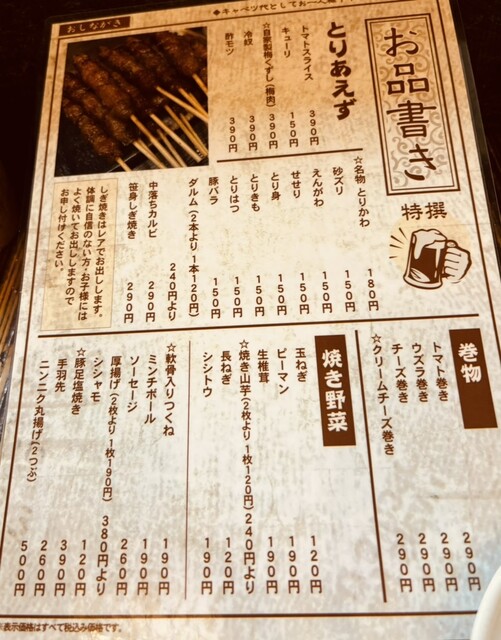 ◆キャベツ代としてお一人様
おしながき
お品書き
特撰
とりあえず
トマトスライス 390円
キューリ 150円
☆自家製梅くずし(梅肉) 390円
冷奴 390円
酢モツ 390円
☆名物 とりかわ 180円
砂ズリ 150円
えんがわ 150円
せせり 150円
とり身 150円
とりきも 150円
とりはつ 150円
豚バラ 150円
ダルム(2本より 1本120円) 240円より
中落ちカルビ 290円
笹身しぎ焼き 290円
しぎ焼きはレアでお出しします。
体調に自信のない方・お子様には
よく焼いてお出ししますので
お申し付けください。
巻物
トマト巻き 290円
ウズラ巻き 290円
チーズ巻き 290円
☆クリームチーズ巻き 290円
焼き野菜
玉ねぎ 120円
ピーマン 190円
生椎茸 190円
☆焼き山芋(2枚より1枚120円) 240円より
長ねぎ 120円
シシトウ 190円
☆軟骨入りつくね 190円
ミンチボール 190円
ソーセージ 260円
厚揚げ(2枚より1枚190円) 380円より
シシャモ 120円
☆豚足塩焼き 390円
手羽先 260円
ニンニク丸揚げ(2つぶ) 500円
※表示価格はすべて税込み価格です。